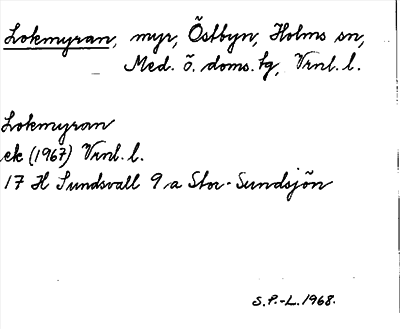 Lokmyran, myr, Östbyn, Holms sn,
Med. ö. doms. tg, Vrnl. l.
Lokmyran
ek (1967) Vrnl. l.
17 H Sundsvall 9 a Stor-Sundsjön
S.P.-L. 1968.